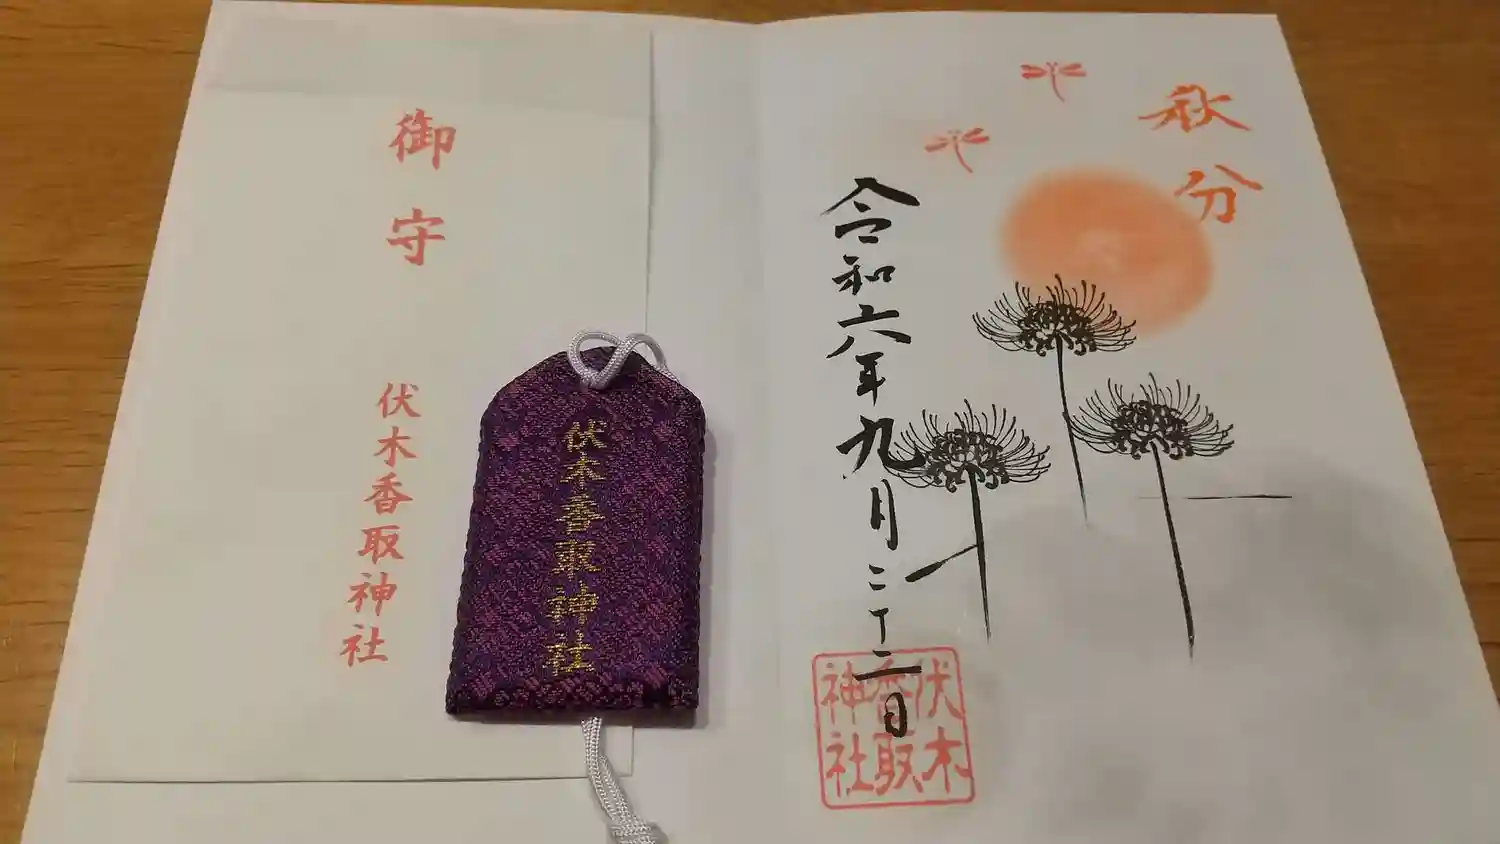 御守
伏木香取神社
伏木香取神社
秋分
令和六年九月二十二日
伏木
香取
神社